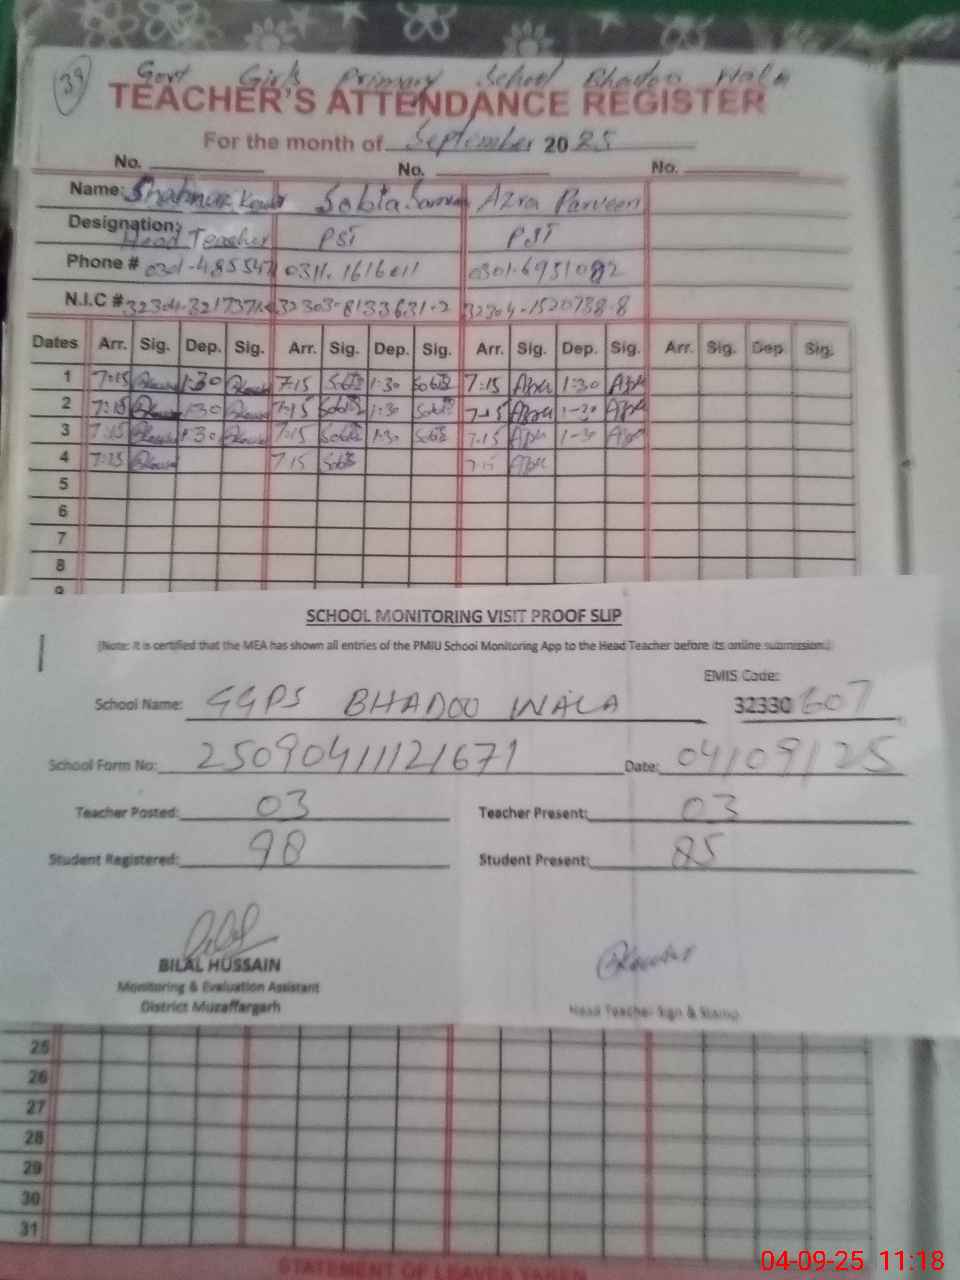 39 Govt Girls Primary School Bhadoo Wala
TEACHER'S ATTENDANCE REGISTER
For the month of September 2025
No. No. No.
Name: Shahnaz Kousar Sobia Azra Parveen
Designation: Head Teacher PST PST
Phone # 0301-485547 0311.1616011 0301.6951082
N.I.C # 32303-8133631-2 32304-1520738-8
Dates Arr. Sig. Dep. Sig. Arr. Sig. Dep. Sig. Arr. Sig. Dep. Sig. Arr. Sig. Dep. Sig.
1 7:15 1:30 7:15 Sobia 1:30 Sobia 7:15 Azra 1:30 Azra
2 7:15 1:30 7:15 Sobia 1:30 Sobia 7:15 Azra 1-30 Azra
3 7:15 1:30 7:15 Sobia 1:30 Sobia 7:15 Azra 1-30 Azra
4 7:15 7:15 Sobia 7:15 Azra
5
6
7
8
9
SCHOOL MONITORING VISIT PROOF SLIP
(Note: It is certified that the MEA has shown all entries of the PMIU School Monitoring App to the Head Teacher before its online submission.)
EMIS Code:
School Name: GGPS BHADOO WALA 32330 607
School Form No: 25090411121671 Date: 04/09/25
Teacher Posted: 03 Teacher Present: 03
Student Registered: 98 Student Present: 85
BILAL HUSSAIN
Monitoring & Evaluation Assistant
District Muzaffargarh Head Teacher Sign & Stamp
25
26
27
28
29
30
31
STATEMENT OF LEAVES TAKEN
04-09-25 11:18